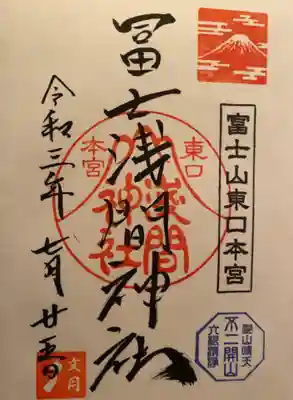 富士山東口本宮
不二開山
六根清浄
冨士浅間神社
東口
本宮
淺間
神社
令和三年七月廿五日
文月